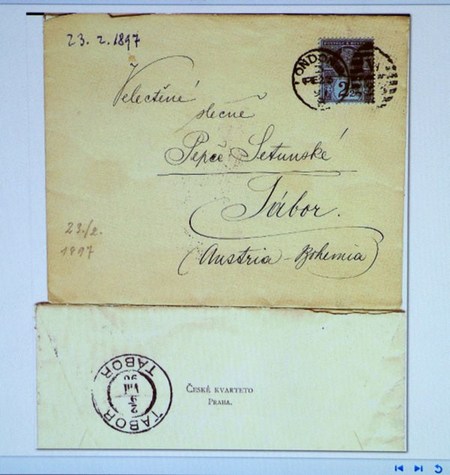 23. 2. 1897
LONDON
2½
Velectěné
slečně
Pepče Setunské
Tábor.
(Austria - Bohemia)
23/2.
1897
TABOR
2/3
VIII
96
TABOR
ČESKÉ KVARTETO
PRAHA.